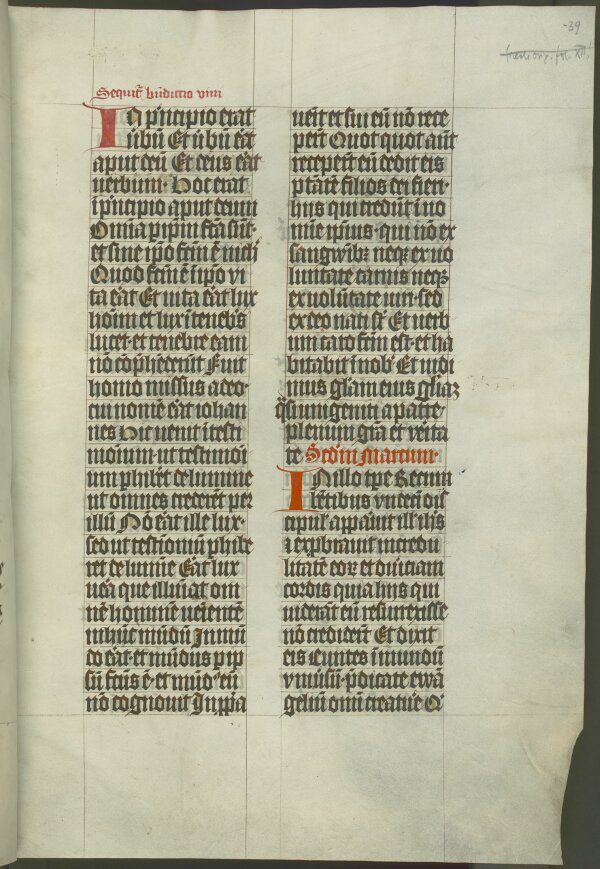 39
Sequit bndictio vini
In pncipio erat
ubu Et ubu eat
aput deu Et deus eat
uerbum Hoc erat
i pncipio aput deum
Omia p ipm fca sut
et sine ipo fcm e nich
Quod fcm e i ipo vi
ta eat Et uita eat lux
hoim et lux i tenebs
lucet et tenebre eam
no cophederut Fuit
homo missus a deo
cui nome eat iohan
nes Hic uenit i testi
monium ut testimoi
um phibet de lumine
ut omnes crederet per
illu No eat ille lux
sed ut testioniu phibe
ret de lumie Eat lux
uea que illuiat om
ne homine ueiente
in huc mudu In mu
do eat et mudus p ip
su fcus e et mud eu
no cognouit In ppa
ueit et sui eu no rece
pert Quot quot aut
recepert eu dedit eis
ptate filios dei fieri
hiis qui credut i no
mie ipius qui no ex
sangwibz neqz ex uo
luntate carnis neqz
ex uolutate uiri sed
ex deo nati st Et uerb
um caro fcm est et ha
bitabit i nob Et uidi
mus glam eius gliaz
qsi unigeniti a patre
plenum gra et veita
te Scdm Marcum
In illo tpe Recum
betibus vndeci dis
cipul apparuit ill ihs
i expbrauit incredu
litate eor et duriciam
cordis quia hiis qui
uiderat eu resurrexisse
no crediderut Et dixit
eis Euntes i mundu
vniusu pdicate ewa
geliu omi creature Q